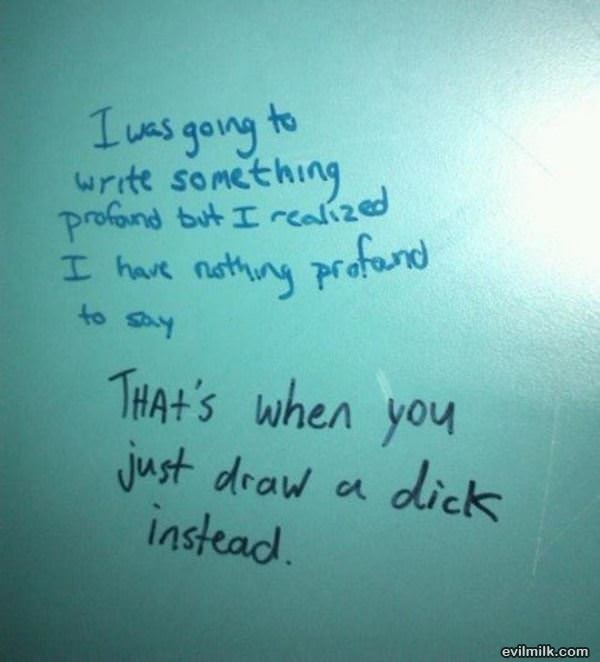 I was going to
write something
profand but I realized
I have nothing profand
to say
THAt's when you
just draw a dick
instead.
evilmilk.com